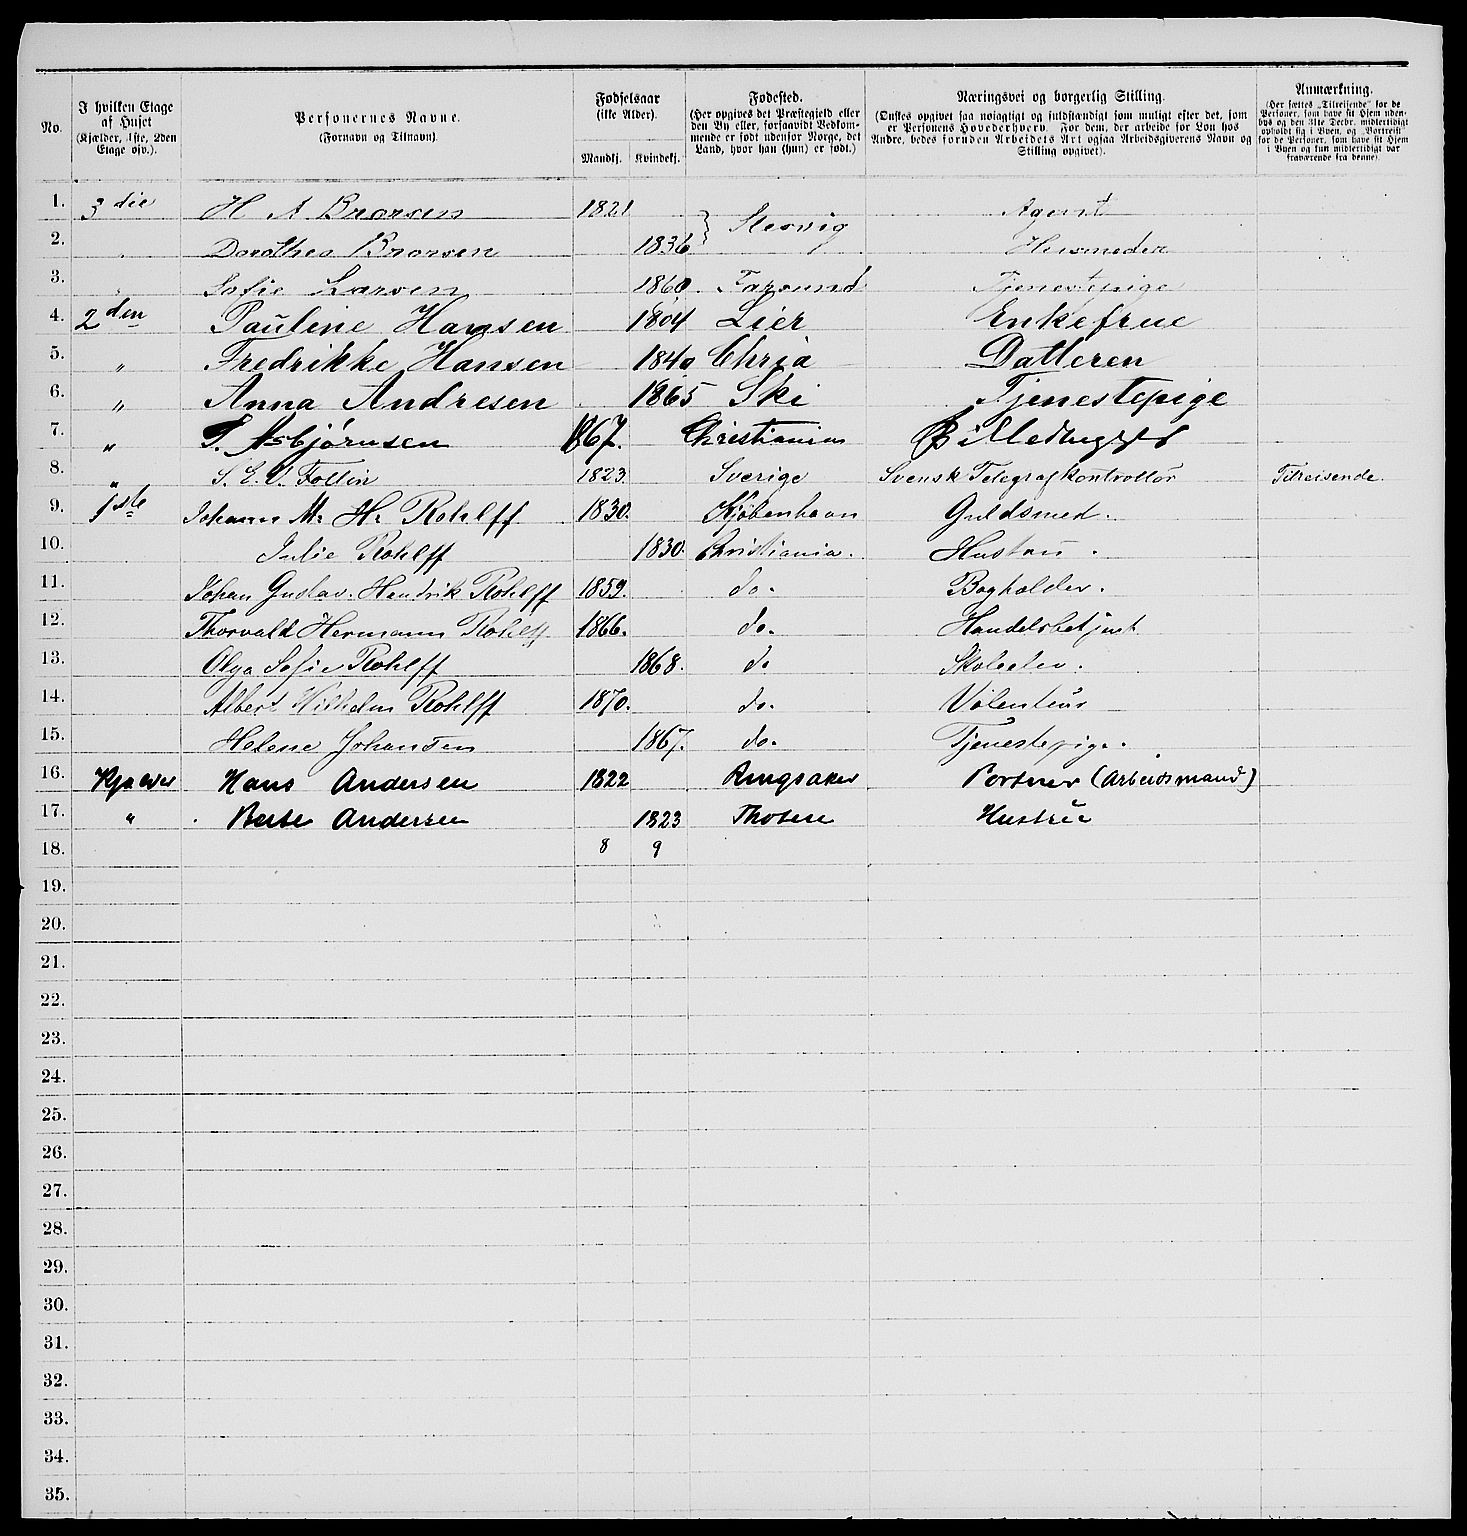 No. I hvilken Etage af Huset (Kjælder, 1ste, 2den Etage osv.). Personernes Navne. (Fornavn og Tilnavn). Fødselsaar (ikke Alder). Mandkj. Kvindekj. Fødested. (Her opgives det Præstegjeld eller den By eller, forsaavidt Vedkommende er født udenfor Norge, det Land, hvor han (hun) er født.) Næringsvei og borgerlig Stilling. (Ønskes opgivet saa nøiagtigt og fuldstændigt som muligt efter det, som er Personens Hovederhverv. For dem, der arbeide for Løn hos Andre, bedes foruden Arbeidets Art ogsaa Arbeidsgiverens Navn og Stilling opgivet). Anmærkning. (Her sættes „Tilreisende" for de Personer, som have sit Hjem udenbys og den 31te Decbr. midlertidigt opholdt sig i Byen, og „Bortreist" for de Personer, som have sit Hjem i Byen og kun midlertidigt var fraværende fra denne)
1. 3die H A Brorsen 1821 } Slesvig Agent
2. " Dorothea Brorsen 1836 Husmoder
3. " Sofie Larsen 1860 Farsund Tjenestepige
4. 2den Pauline Hansen 1804 Lier Enkefrue
5. " Fredrikke Hansen 1840 Chria Datteren
6. " Anna Andresen 1865 Ski Tjenestepige
7. " T. Asbjørnsen 1867. Christiania Billedhugger
8. " S. E. V. Follin 1823 Sverige Svensk Telegrafkontrollör Tilreisende.
9. 1ste Johann M. H. Rohlff 1830. Kjøbenhavn Guldsmed.
10. Julie Rohlff 1830. Christiania. Hustru.
11. Johan Gustav Hendrik Rohlff 1859. do. Bogholder.
12. Thorvald Hermann Rohlff 1866. do. Handelsbetjent
13. Olga Sofie Rohlff 1868. do Skoleelev.
14. Albert Wilhelm Rohlff 1870. do. Volentur
15. Helene Johansen 1867. do. Tjenestepige.
16. Kjælder Hans Andersen 1822 Ringsaker Portner (Arbeidsmand)
17. " Berte Andersen 1823 Thoten Hustrue
18. 8 9
19.
20.
21.
22.
23.
24.
25.
26.
27.
28.
29.
30.
31.
32.
33.
34.
35.